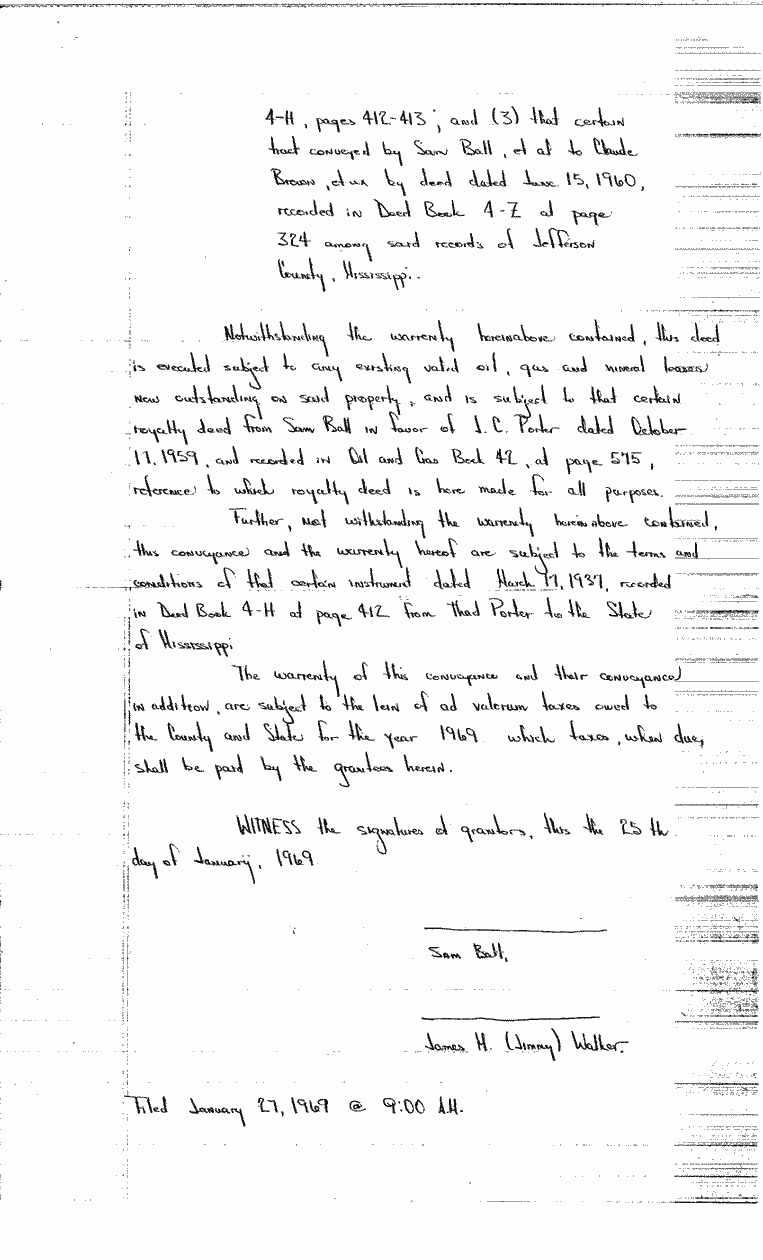 4-H, pages 412-413; and (3) that certain
tract conveyed by Sam Ball, et al to Claude
Brown, et ux by deed dated June 15, 1960,
recorded in Deed Book 4-Z at page
324 among said records of Jefferson
County, Mississippi.
Notwithstanding the warrenty hereinabove contained, this deed
is executed subject to any existing valid oil, gas and mineral leases
now outstanding on said property, and is subject to that certain
royalty deed from Sam Ball in favor of J.C. Porter dated October
17, 1959, and recorded in Oil and Gas Book 42, at page 575,
reference to which royalty deed is here made for all purposes.
Further, not withstanding the warrenty hereinabove contained,
this conveyance and the warrenty hereof are subject to the terms and
conditions of that certain instrument dated March 17, 1937, recorded
in Deed Book 4-H at page 412 from Thad Porter to the State
of Mississippi
The warrenty of this conveyance and their conveyance
in addition, are subject to the lein of ad valerum taxes owed to
the County and State for the year 1969 which taxes, when due,
shall be paid by the grantees herein.
WITNESS the signatures of grantors, this the 25 th
day of January, 1969
Sam Ball,
James H. (Jimmy) Walker.
Filed January 27, 1969 @ 9:00 A.M.